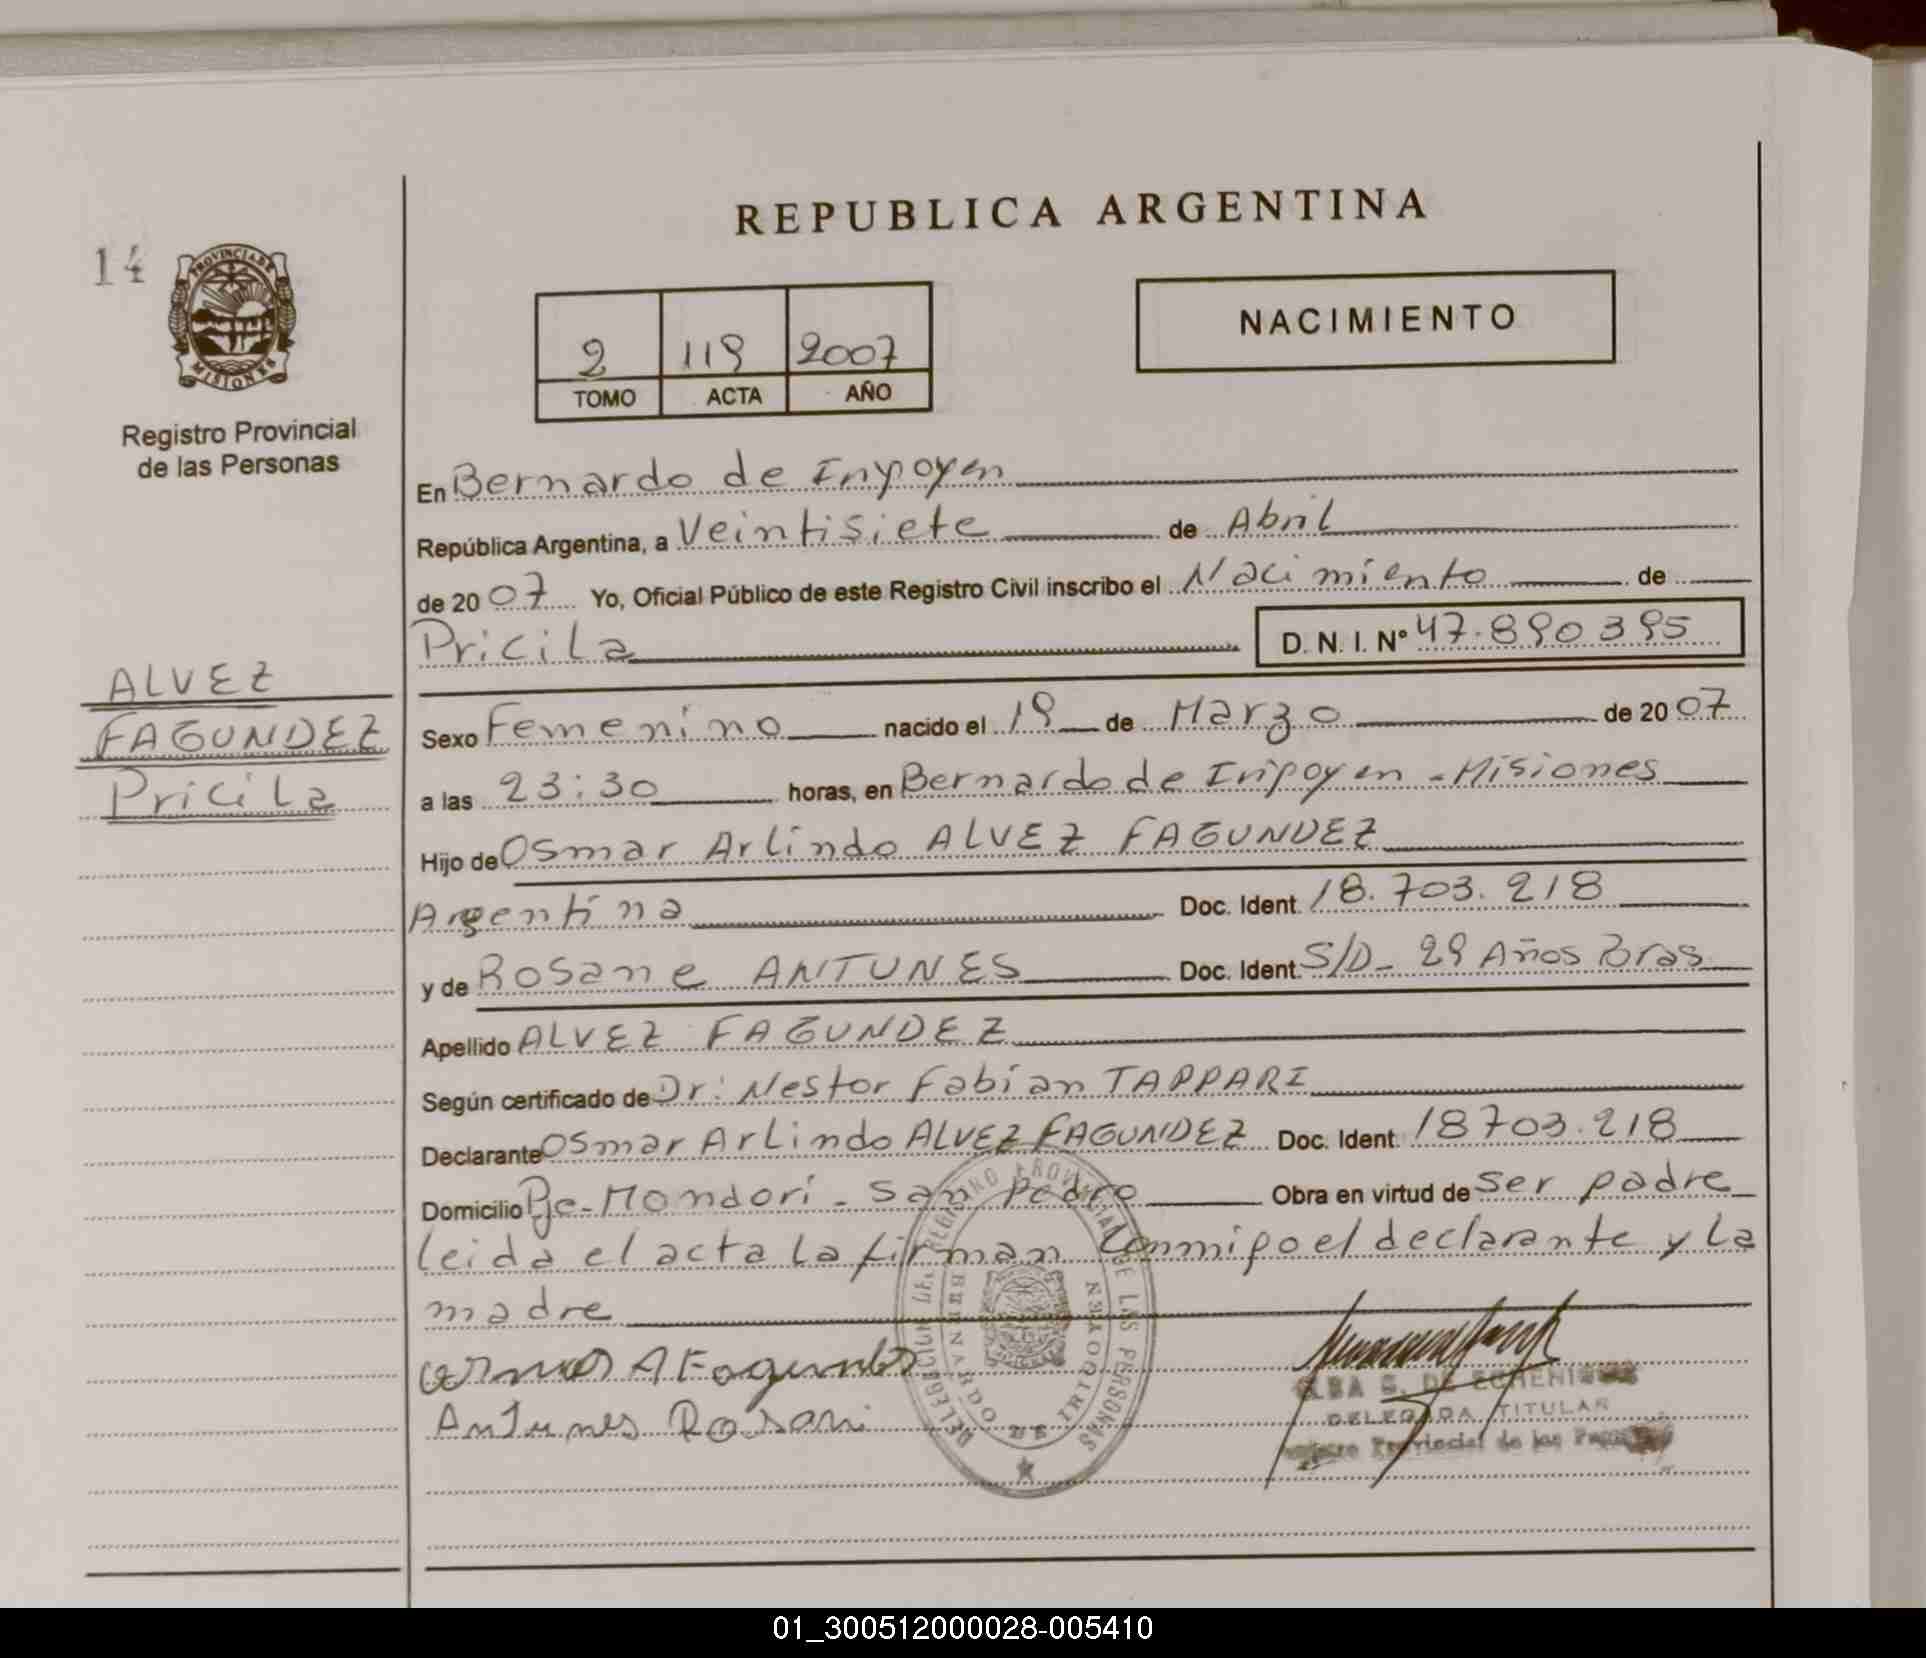 REPUBLICA ARGENTINA
14
PROVINCIA DE
MISIONES
Registro Provincial
de las Personas
NACIMIENTO
2 119 2007
TOMO ACTA AÑO
En Bernardo de Irigoyen
República Argentina, a Veintisiete de Abril
de 20 07 Yo, Oficial Público de este Registro Civil inscribo el Nacimiento de
Pricila D. N. I. Nº 47.890.395
ALVEZ
FAGUNDEZ
Pricila
Sexo Femenino nacido el 19 de Marzo de 20 07
a las 23:30 horas, en Bernardo de Irigoyen - Misiones
Hijo de Osmar Arlindo ALVEZ FAGUNDEZ
Argentina Doc. Ident. 18.703.218
y de Rosane ANTUNES Doc. Ident. S/D - 29 Años Bras
Apellido ALVEZ FAGUNDEZ
Según certificado de Dr: Nestor Fabian TAPPARI
Declarante Osmar Arlindo ALVEZ FAGUNDEZ Doc. Ident. 18703.218
Domicilio Pje. Mondorí - San Pedro Obra en virtud de ser padre
leida el acta la firman Conmigo el declarante y la
madre
A Fagundes
Antunes Rosani
DELEGACION DEL REGISTRO PROVINCIAL DE LAS PERSONAS
BERNARDO DE IRIGOYEN
ELBA G. DE ECHENIQUE
DELEGADA TITULAR
Registro Provincial de las Personas
01_300512000028-005410